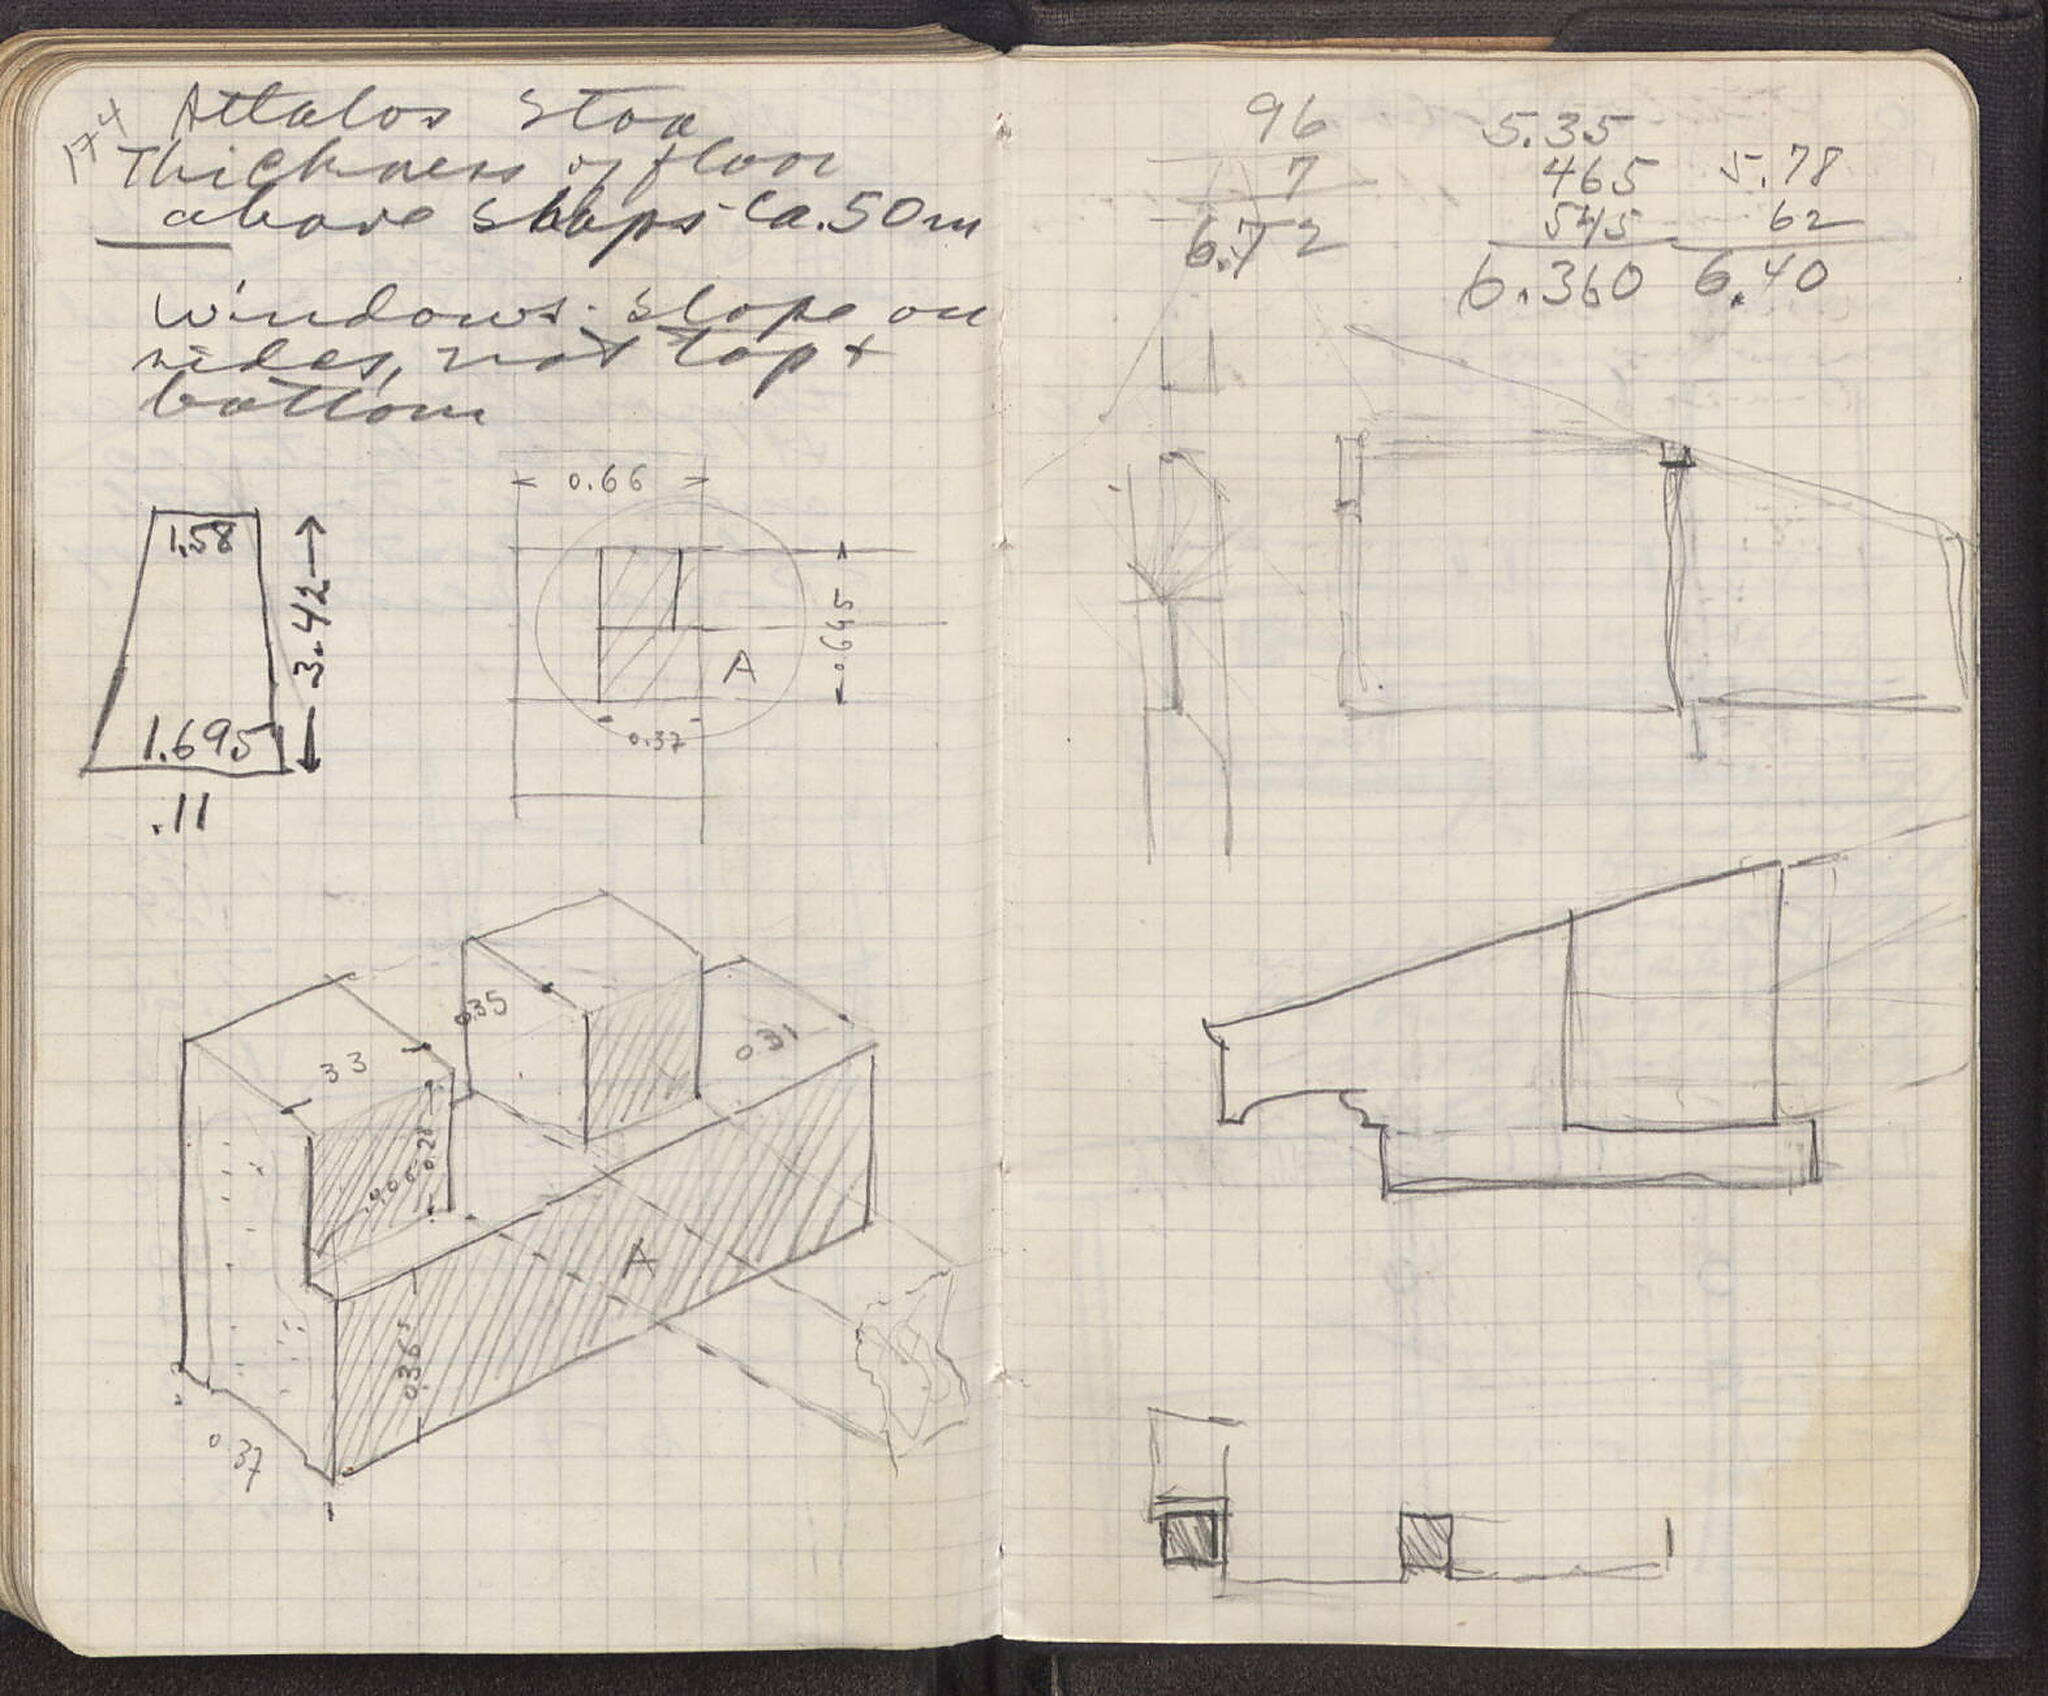 174
Attalos Stoa
Thickness of floor
above shops - Ca. 50 m
Windows: slope on
sides, not top +
bottom
0.66
1.58
3.42
0.645
A
1.695
0.37
.11
0.35
33
0.31
0.28
.406
A
0.365
0.37
96
7
6.72
5.35
465
545
6.360
5.78
62
6.40